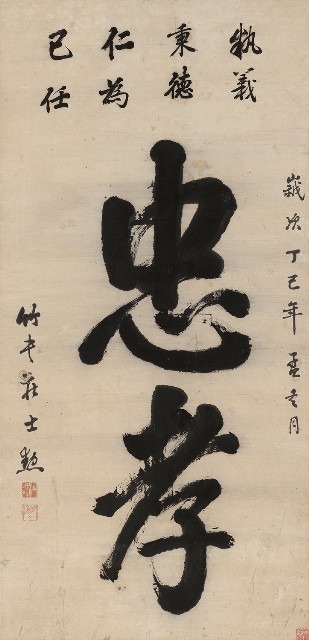 執義
秉德
仁為
己任
忠孝
歲次丁巳年孟冬月
竹書莊士勳